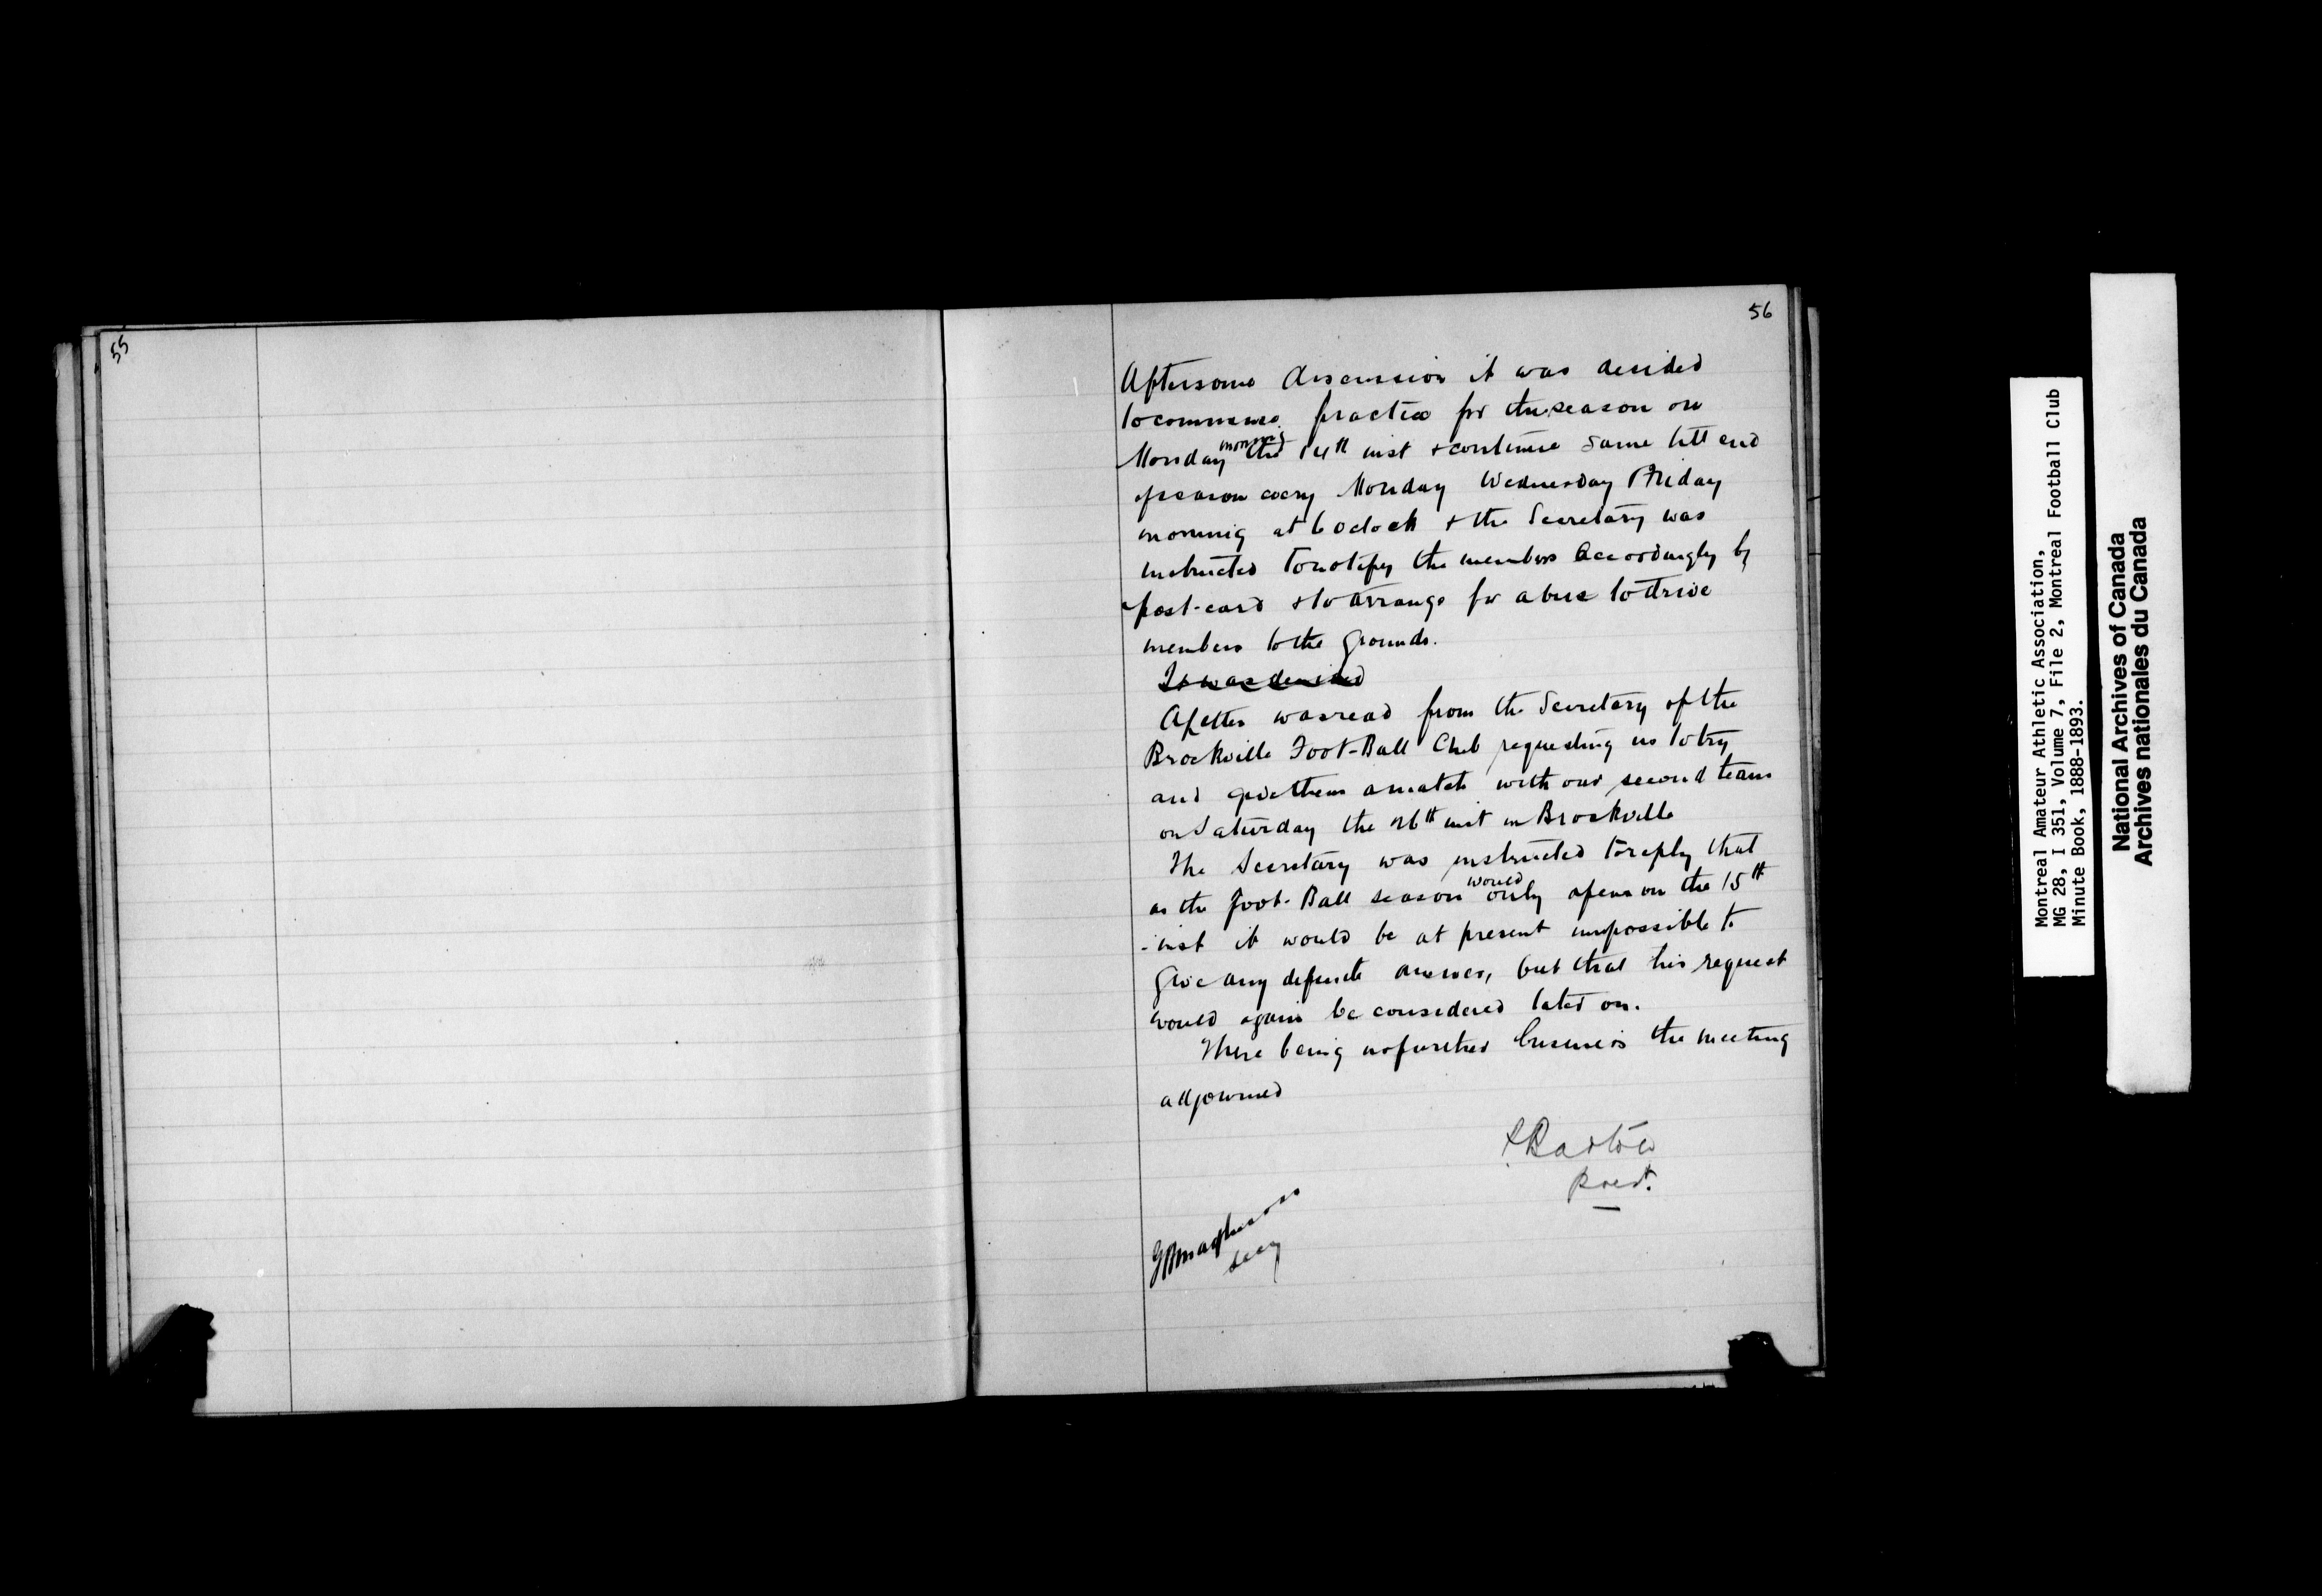 55
56
After some discussion it was decided
to commence practice for the season on
Monday morning the 14th inst & continue same till end
of season every Monday Wednesday & Friday
morning at 6 oclock & the Secretary was
instructed to notify the members accordingly by
post-card & to arrange for a bus to drive
members to the grounds.
It was decided
A letter was read from the Secretary of the
Brockville Foot-Ball Club requesting us to try
and give them a match with our second team
on Saturday the 26th inst in Brockville
The Secretary was instructed to reply that
as the Foot-Ball season would only open on the 15th
inst it would be at present impossible to
give any definite answer, but that his request
would again be considered later on.
There being no further business the meeting
adjourned
Barlow
Prest.
Secy
Montreal Amateur Athletic Association,
MG 28, I 351, Volume 7, File 2, Montreal Football Club
Minute Book, 1888-1893.
National Archives of Canada
Archives nationales du Canada